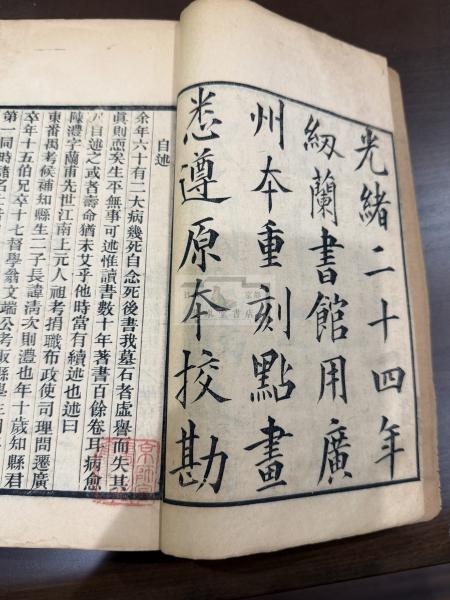 光緒二十四年
紉蘭書館用廣
州本重刻點畫
悉遵原本挍勘
自述
余年六十有二大病幾死自念死後書我墓石者虛譽而失其
眞則恧矣生平無事可述惟讀書數十年著書百餘卷耳病愈
乃自述之或者壽命猶未艾乎他時當有續述也述曰
陳澧字蘭甫先世江南上元人祖考捐職布政使司理問遷廣
東番禺考候補知縣生二子長諱清次則澧也年十歲知縣君
卒年十五伯兄卒十七督學翁文端公考取縣學生
第一同時諸名士